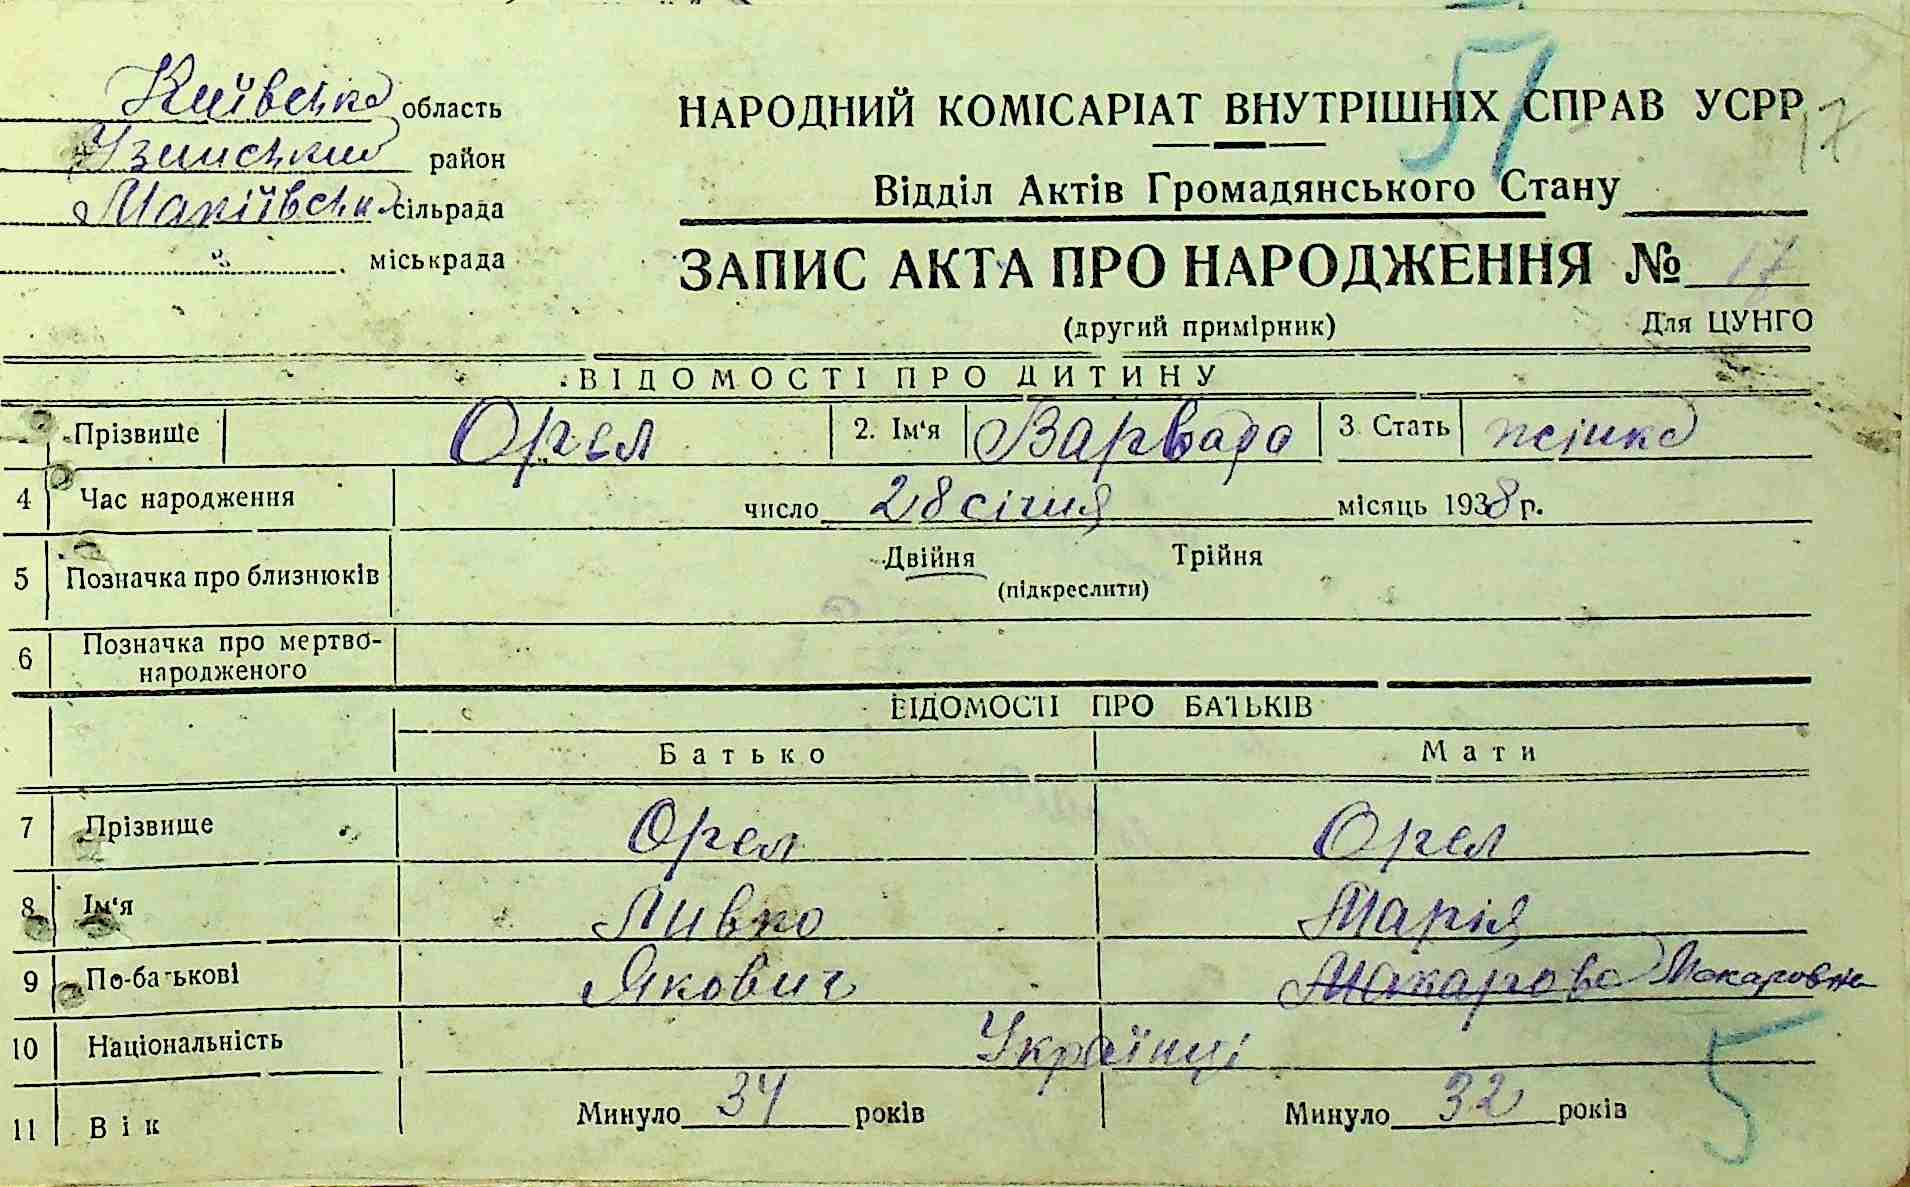 Київська область
Узинський район
Макіївська сільрада
міськрада
51
НАРОДНИЙ КОМІСАРІАТ ВНУТРІШНІХ СПРАВ УСРР
17
Відділ Актів Громадянського Стану
ЗАПИС АКТА ПРО НАРОДЖЕННЯ № 17
(другий примірник) Для ЦУНГО
ВІДОМОСТІ ПРО ДИТИНУ
Прізвище Орел 2. Ім'я Варвара 3. Стать жінка
4 Час народження число 28 січня місяць 1938 р.
5 Позначка про близнюків Двійня Трійня
(підкреслити)
6 Позначка про мертво-
народженого
ВІДОМОСТІ ПРО БАТЬКІВ
Батько Мати
7 Прізвище Орел Орел
8 Ім'я Ливко Марія
9 По-батькові Якович Макарова Макаровна
10 Національність Українці
11 Вік Минуло 34 років Минуло 32 років
5